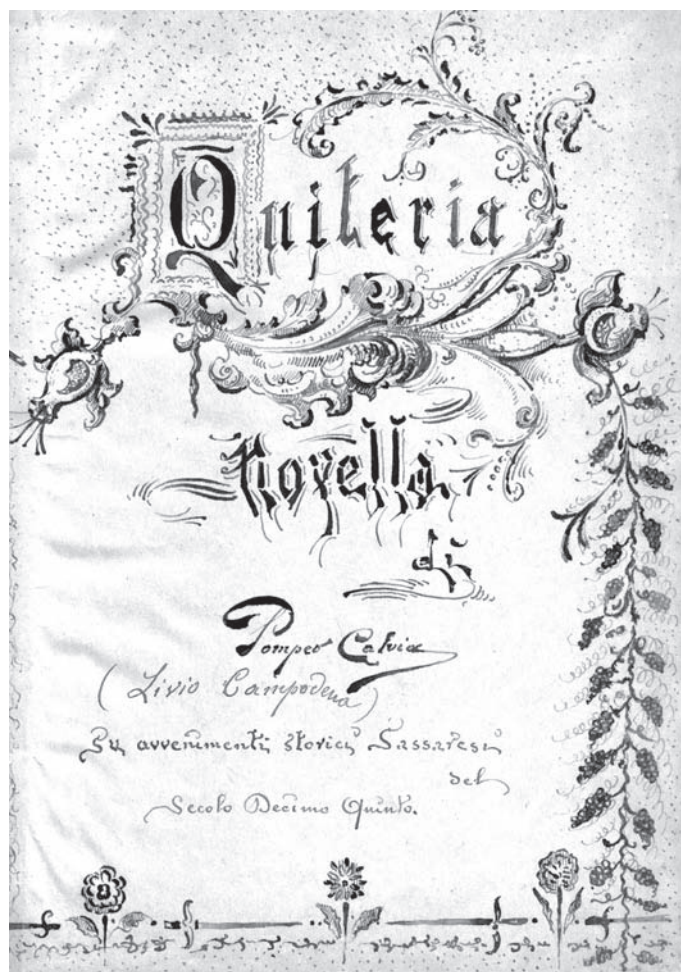 Quiteria
Novella
di
Pompeo Calvia
(Livio Campodena)
Su avvenimenti storici Sassaresi
del
Secolo Decimo Quinto.